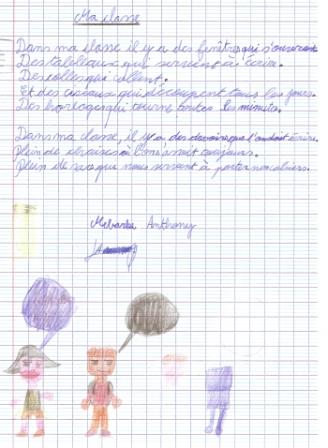 Ma classe
Dans ma classe il y a des fenêtres qui s'ouvrent
Des tableaux qui servent à écrire.
Des colles qui collent.
Et des ciseaux qui découpent tous les jours.
Des horloges qui tourne toutes les minutes.
Dans ma classe, il y a des devoirs que l'on doit écrire.
Plein de chaises où l'on s'assoit toujours.
Plein de sacs que nous servent à porter nos cahiers.
Anthony